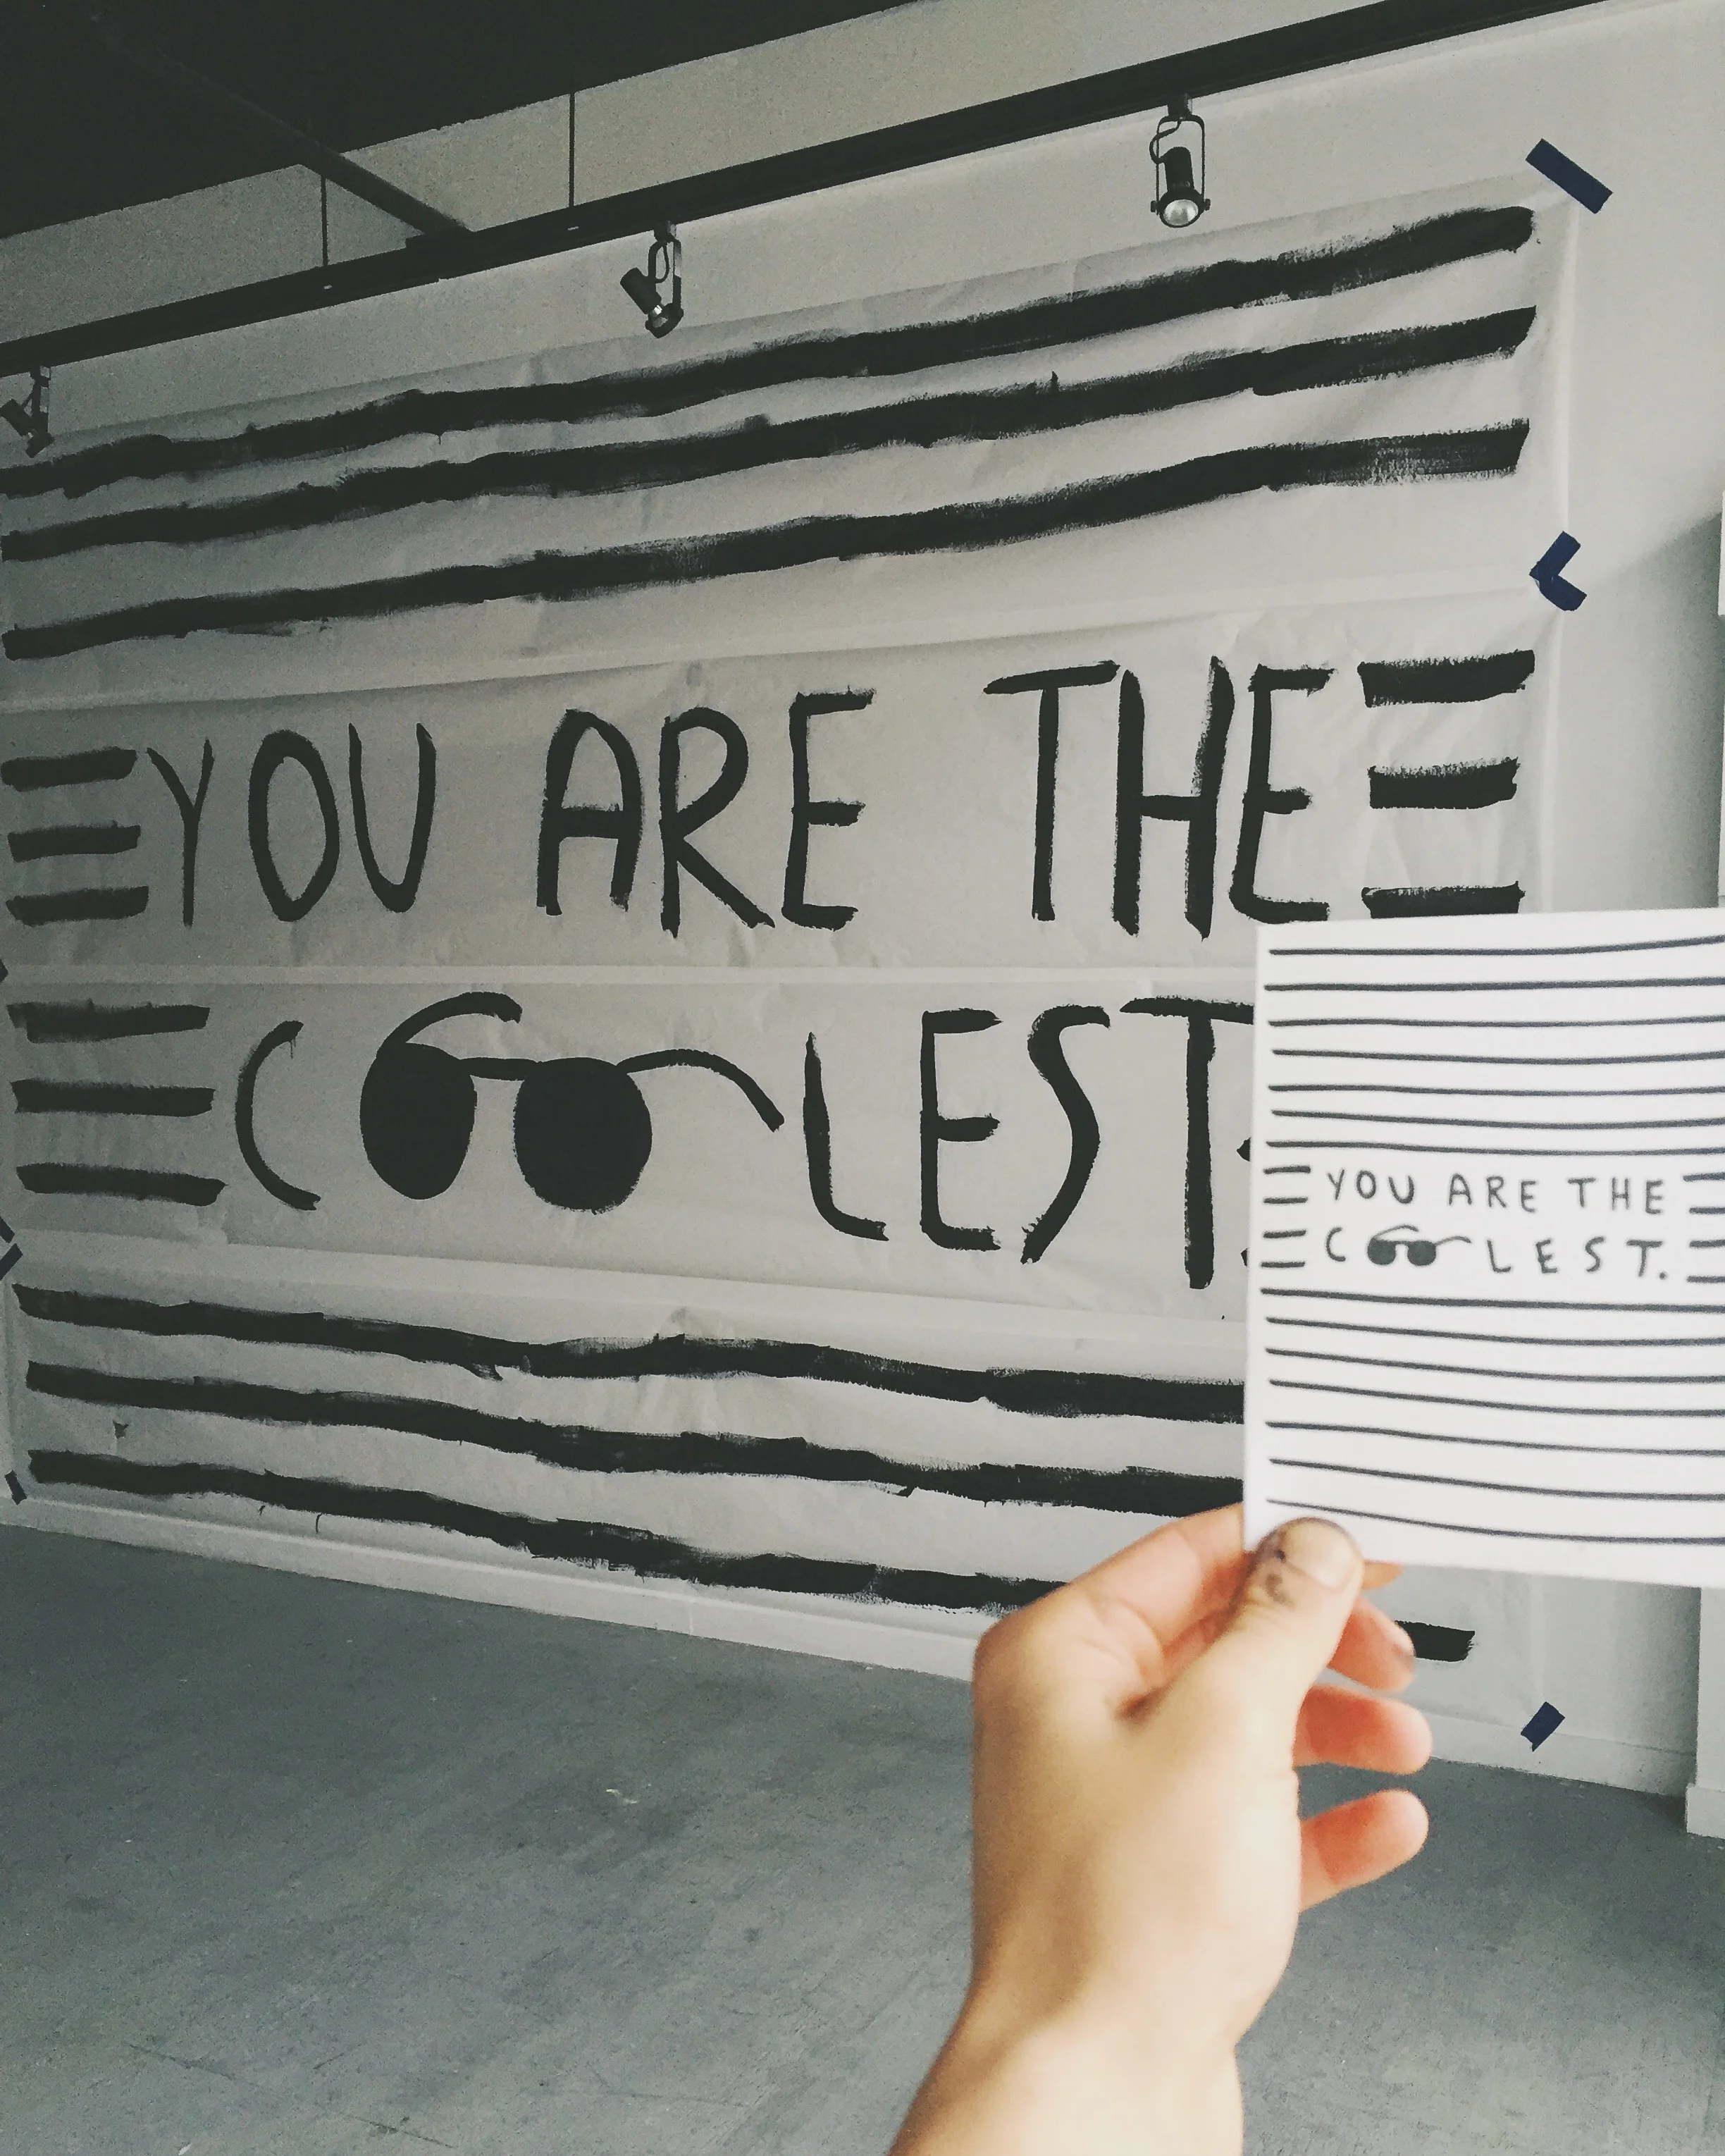 YOU ARE THE
COOLEST.
YOU ARE THE
COOLEST.